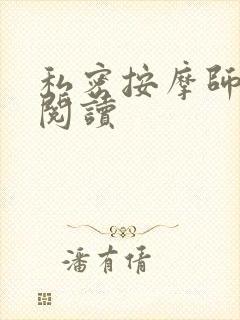 私密按摩師
閱讀
潘有倩